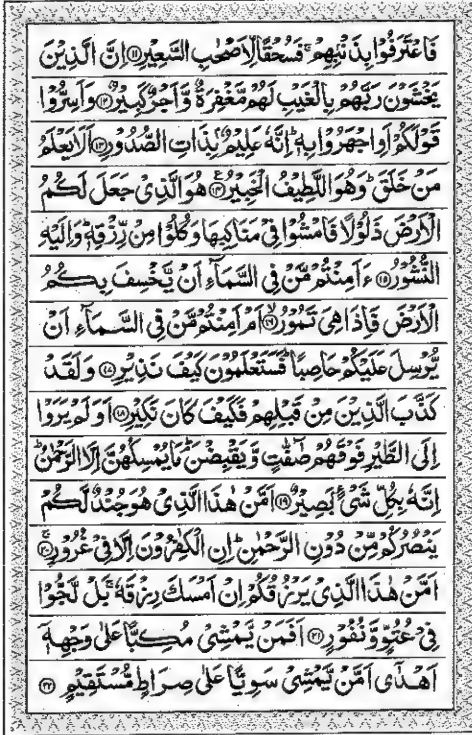 فَاعْتَرَفُوْا بِذَنْۢبِهِمْ ۚ فَسُحْقًا لِّاَصْحٰبِ السَّعِيْرِ ۝۱۱ اِنَّ الَّذِيْنَ
يَخْشَوْنَ رَبَّهُمْ بِالْغَيْبِ لَهُمْ مَّغْفِرَةٌ وَّاَجْرٌ كَبِيْرٌ ۝۱۲ وَاَسِرُّوْا
قَوْلَكُمْ اَوِ اجْهَرُوْا بِهٖ ؕ اِنَّهٗ عَلِيْمٌۢ بِذَاتِ الصُّدُوْرِ ۝۱۳ اَلَا يَعْلَمُ
مَنْ خَلَقَ ؕ وَهُوَ اللَّطِيْفُ الْخَبِيْرُ ۝۱۴ هُوَ الَّذِيْ جَعَلَ لَكُمُ
الْاَرْضَ ذَلُوْلًا فَامْشُوْا فِيْ مَنَاكِبِهَا وَكُلُوْا مِنْ رِّزْقِهٖ ؕ وَاِلَيْهِ
النُّشُوْرُ ۝۱۵ ءَاَمِنْتُمْ مَّنْ فِي السَّمَآءِ اَنْ يَّخْسِفَ بِكُمُ
الْاَرْضَ فَاِذَا هِيَ تَمُوْرُ ۝۱۶ اَمْ اَمِنْتُمْ مَّنْ فِي السَّمَآءِ اَنْ
يُّرْسِلَ عَلَيْكُمْ حَاصِبًا ؕ فَسَتَعْلَمُوْنَ كَيْفَ نَذِيْرِ ۝۱۷ وَلَقَدْ
كَذَّبَ الَّذِيْنَ مِنْ قَبْلِهِمْ فَكَيْفَ كَانَ نَكِيْرِ ۝۱۸ اَوَلَمْ يَرَوْا
اِلَى الطَّيْرِ فَوْقَهُمْ صٰٓفّٰتٍ وَّيَقْبِضْنَ ؔؕ مَا يُمْسِكُهُنَّ اِلَّا الرَّحْمٰنُ ؕ
اِنَّهٗ بِكُلِّ شَيْءٍۭ بَصِيْرٌ ۝۱۹ اَمَّنْ هٰذَا الَّذِيْ هُوَ جُنْدٌ لَّكُمْ
يَنْصُرُكُمْ مِّنْ دُوْنِ الرَّحْمٰنِ ؕ اِنِ الْكٰفِرُوْنَ اِلَّا فِيْ غُرُوْرٍ ۝۲۰
اَمَّنْ هٰذَا الَّذِيْ يَرْزُقُكُمْ اِنْ اَمْسَكَ رِزْقَهٗ ۚ بَلْ لَّجُّوْا
فِيْ عُتُوٍّ وَّنُفُوْرٍ ۝۲۱ اَفَمَنْ يَّمْشِيْ مُكِبًّا عَلٰى وَجْهِهٖٓ
اَهْدٰٓى اَمَّنْ يَّمْشِيْ سَوِيًّا عَلٰى صِرَاطٍ مُّسْتَقِيْمٍ ۝۲۲